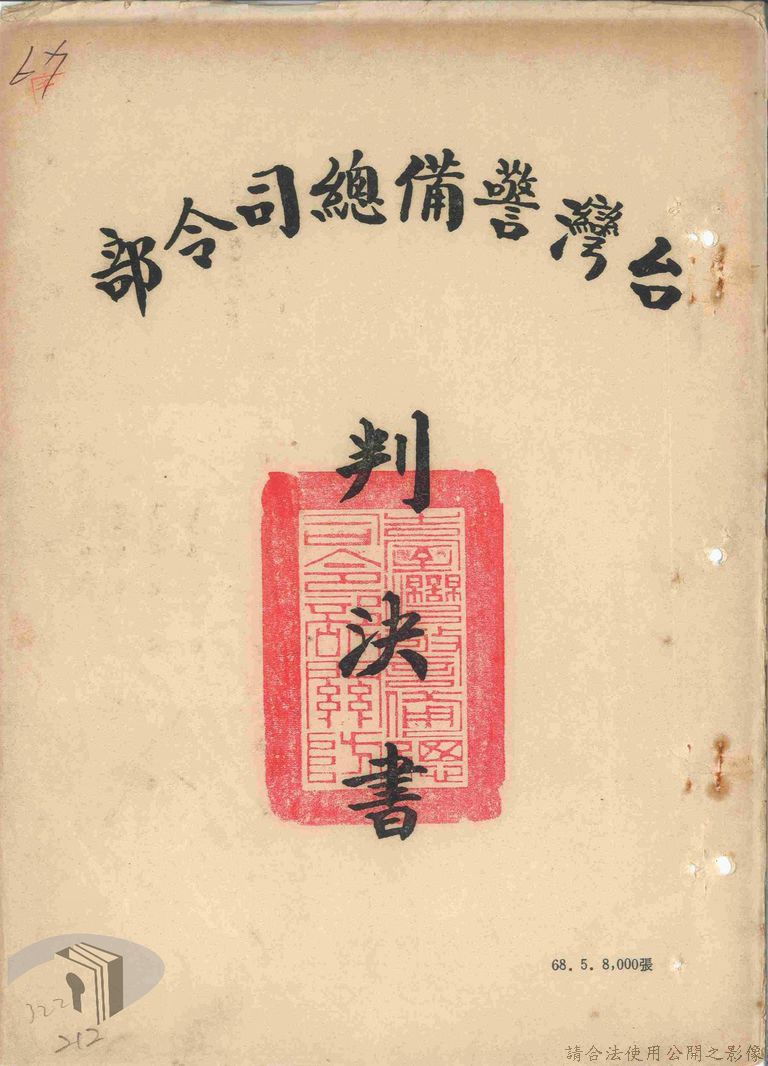 台灣警備總司令部
判
決
書
臺灣警備總
司令部關防
68. 5. 8,000張
322
212
請合法使用公開之影像